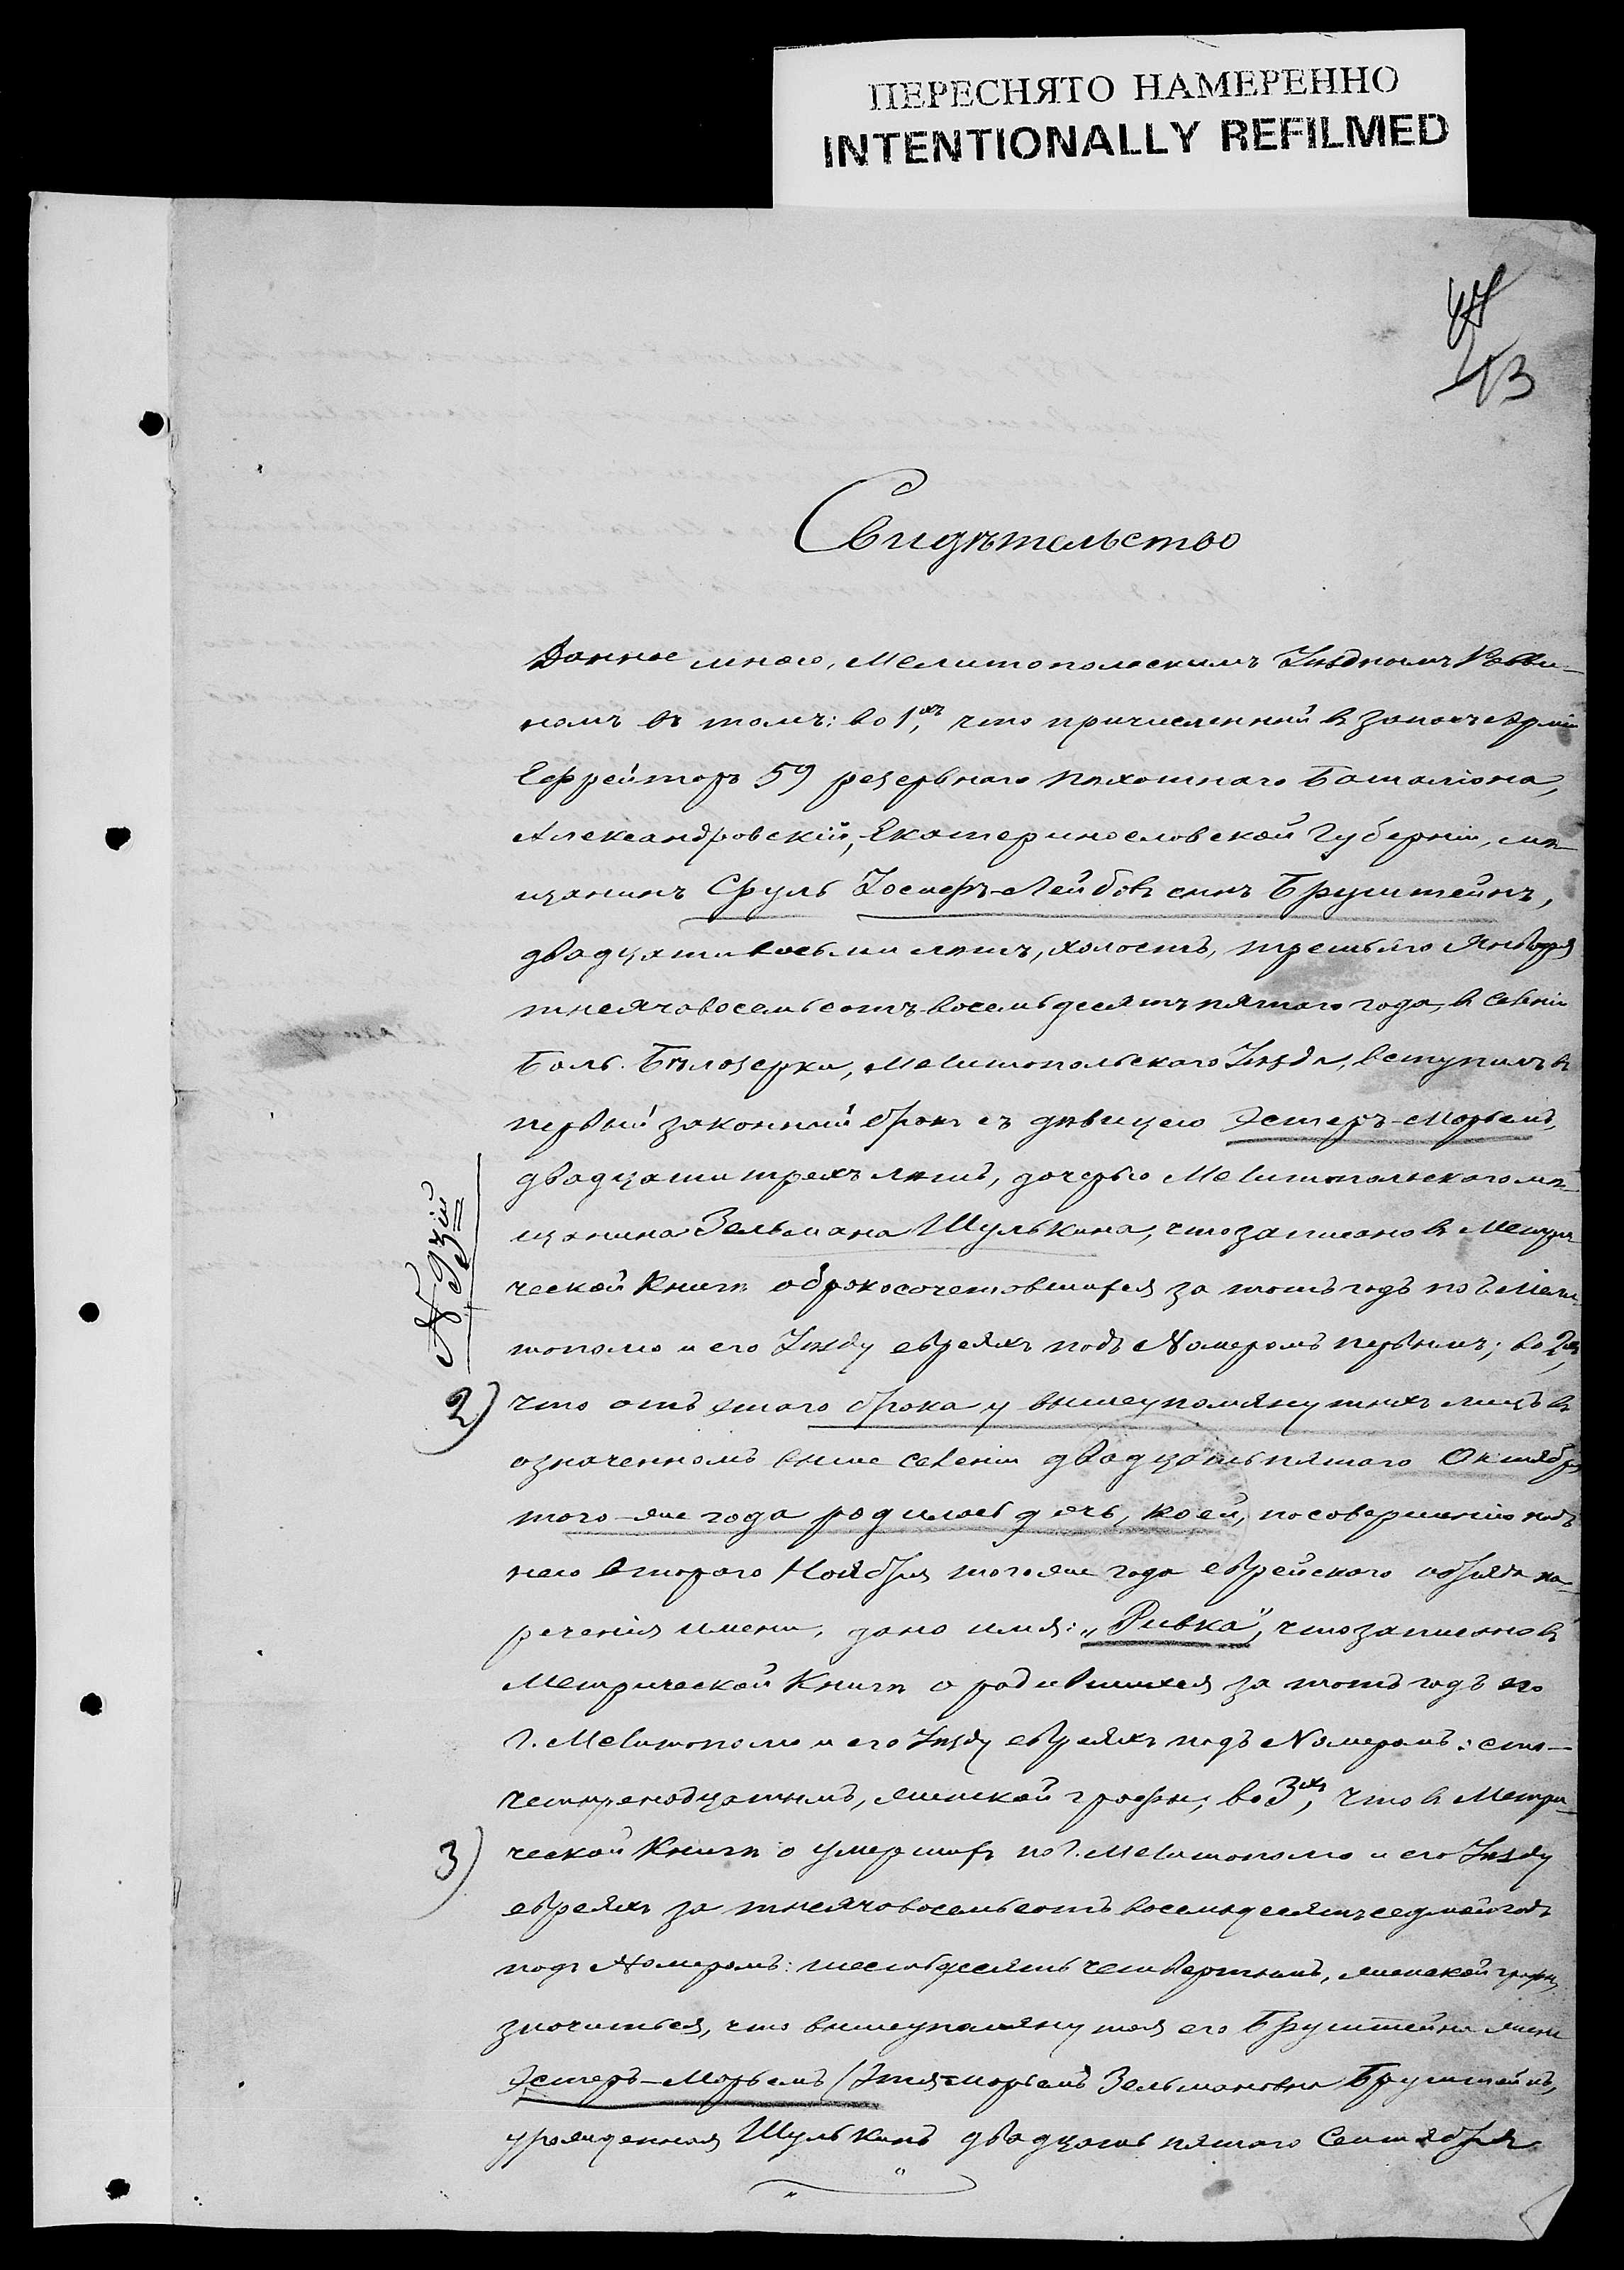 ПЕРЕСНЯТО НАМЕРЕННО
INTENTIONALLY REFILMED
13
Свидѣтельство
Данное мною, Мелитопольскимъ Уѣзднымъ Равви-
номъ въ томъ: во 1хъ, что причисленный въ запасъ арміи
Ефрейторъ 59 резервнаго пѣхотнаго Баталіона,
Александровскій, Екатеринославской Губерніи, мѣ-
щанинъ Сруль Іосифъ-Лейбовъ сынъ Бруштейнъ,
двадцати восьми лѣтъ, холостъ, третьяго Января
тысяча восемьсотъ восемьдесятъ пятаго года, в селеніи
Боль. Бѣлозерка, Мелитопольскаго Уѣзда, вступилъ в
первый законный бракъ съ дѣвицею Эстеръ-Марьемъ,
двадцати трехъ лѣтъ, дочерью Мелитопольскаго мѣ-
щанина Зельмана Шулькина, что записано в Метри-
ческой Книгѣ о бракосочетавшихся за тотъ годъ по г. Мели-
тополю и его Уѣзду евреяхъ подъ Номеромъ первымъ; во 2хъ,
2) что отъ этого брака у вышеупомянутыхъ лицъ в
означенномъ выше селеніи двадцать пятаго Октября
того-же года родилась дочь, коей, по совершеніи надъ
нею втораго Ноября того же года еврейскаго обряда на-
реченія имени, дано имя: „Ривка", что записано в
Метрической Книгѣ о родившихся за тотъ годъ по
г. Мелитополю и его Уѣзду евреяхъ подъ Номеромъ: сто-
четырнадцатымъ, женской графы; во 3хъ, что в Метри-
3) ческой Книгѣ о умершихъ по г. Мелитополю и его Уѣзду
евреяхъ за тысяча восемьсотъ восемьдесятъ седьмой годъ
подъ Номеромъ: шестьдесятъ четвертымъ, женской графы,
значиться, что вышеупомянутая его Бруштейна жена
Эстеръ-Марьемъ (Этя-Марьемъ Зельмановна Бруштейнъ,
урожденная Шулькинъ двадцать пятаго Сентября